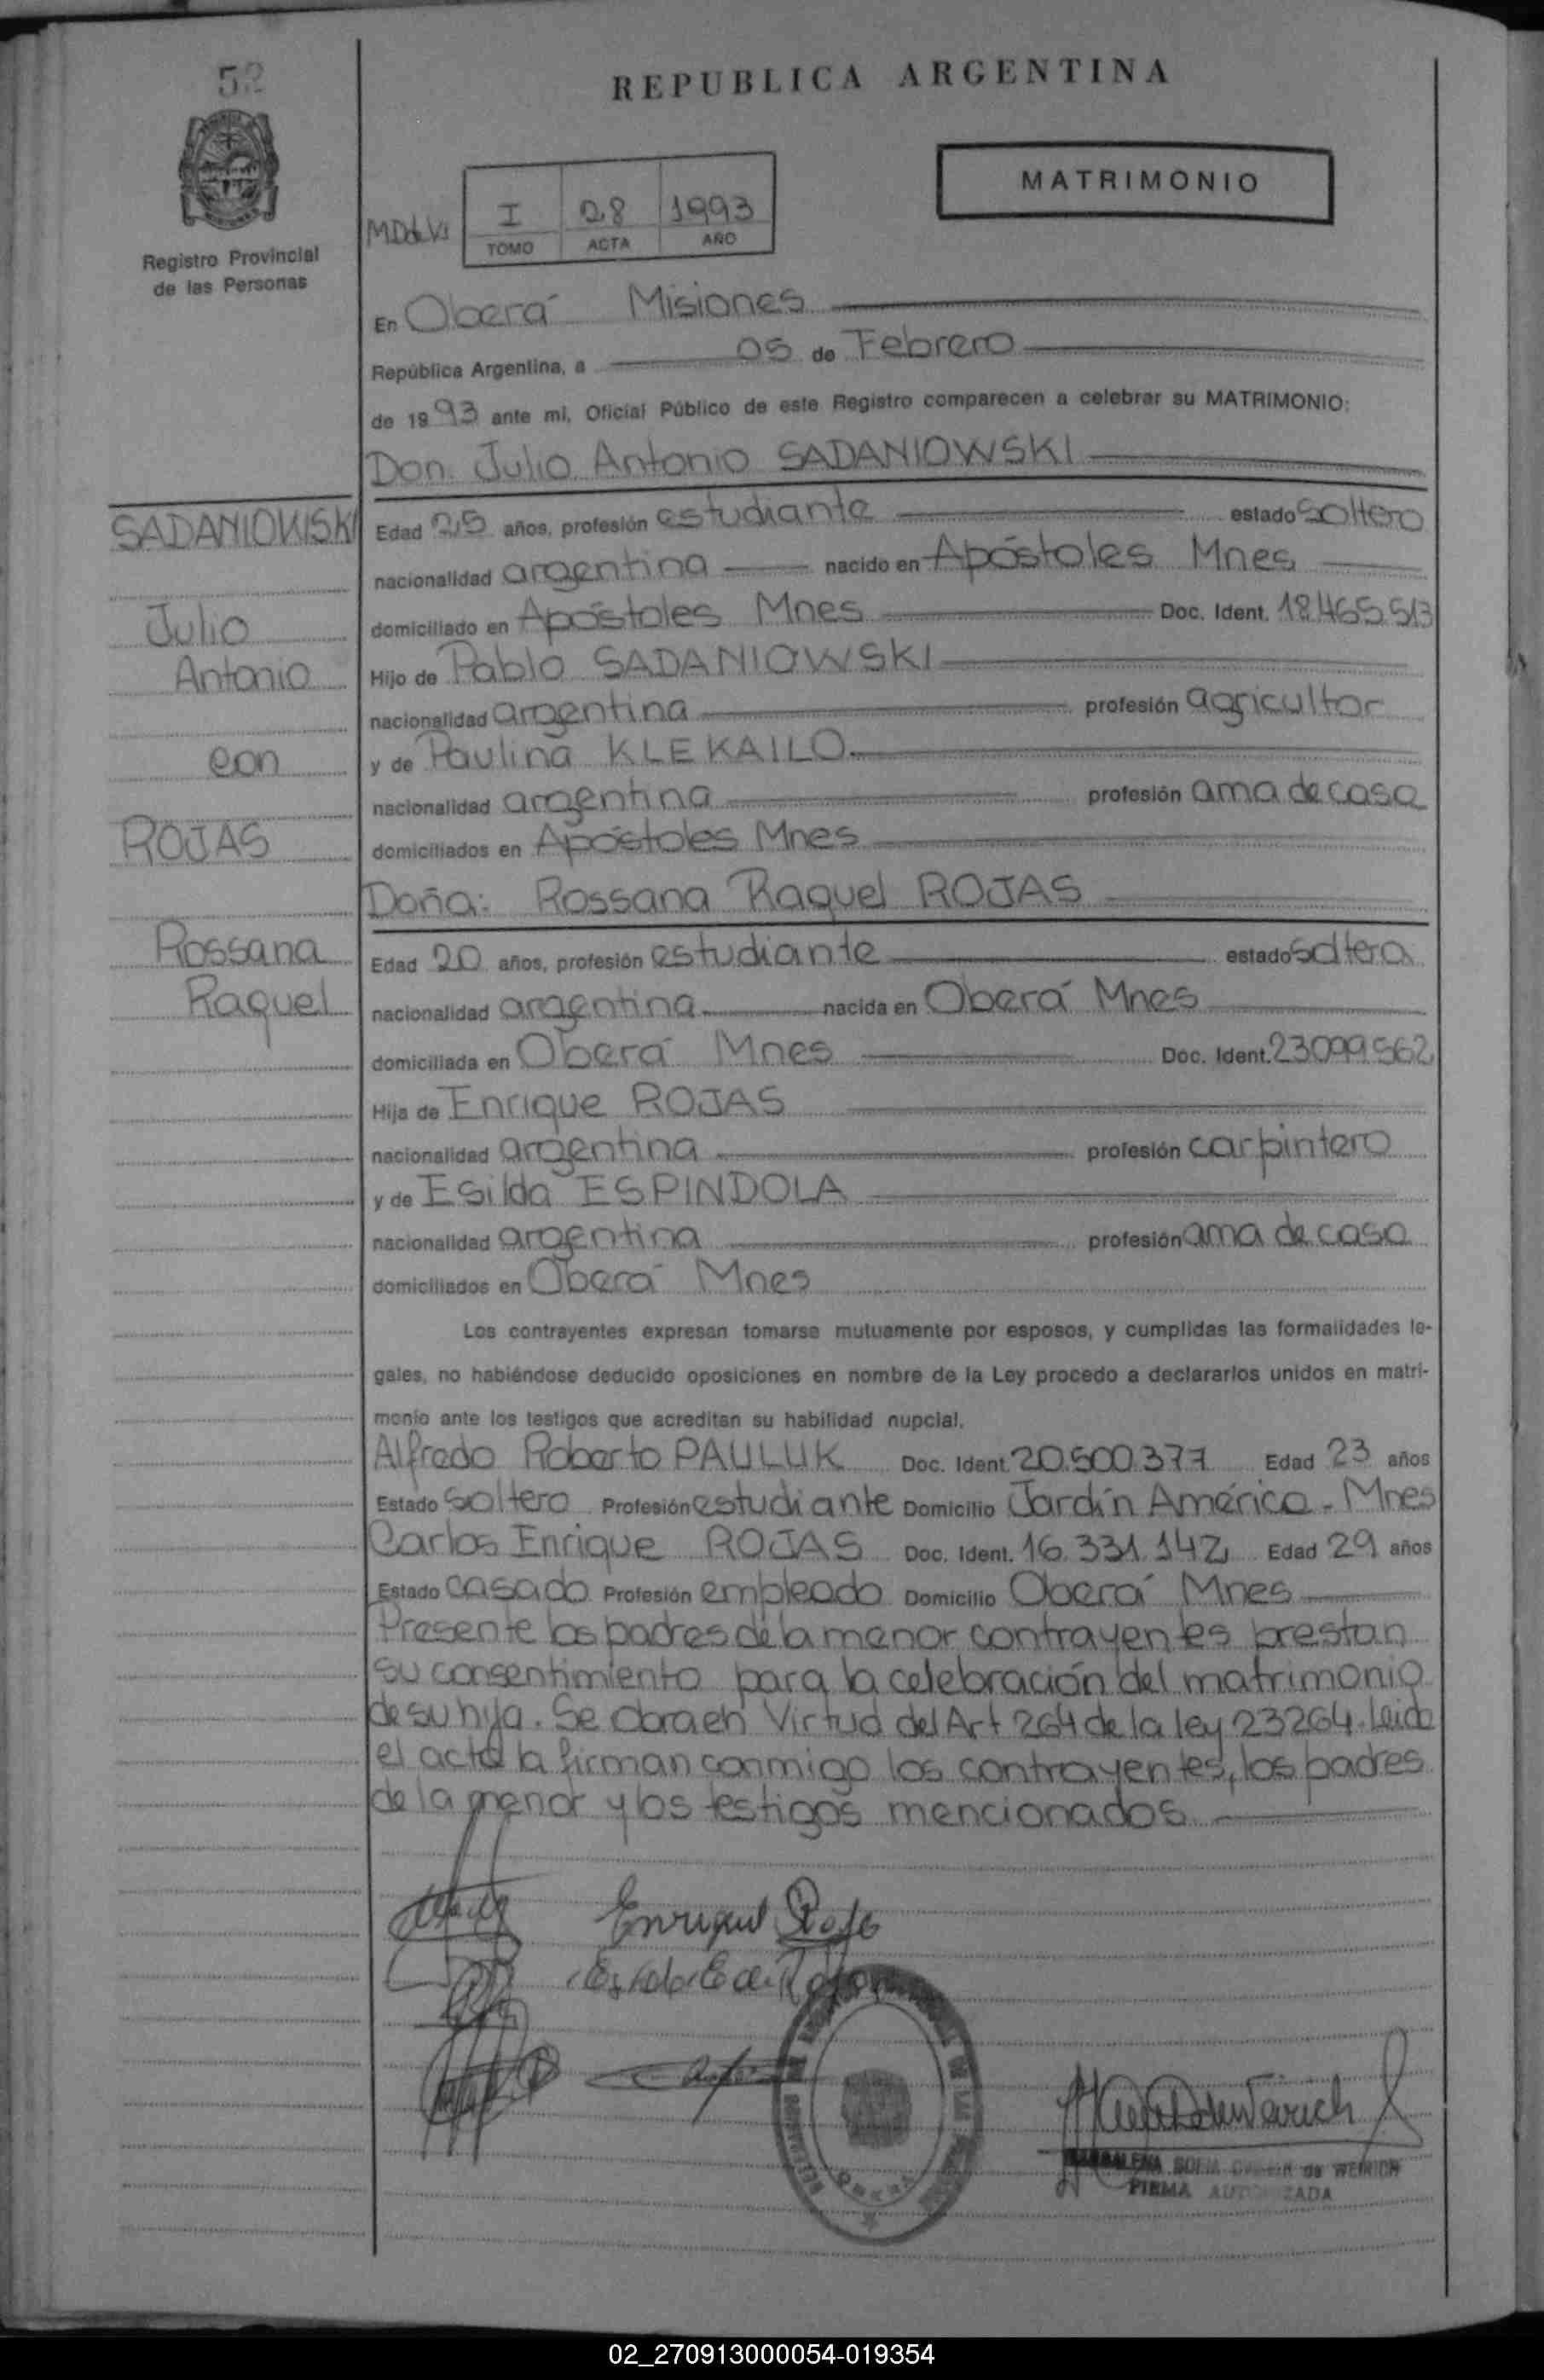 52
REPUBLICA ARGENTINA
MATRIMONIO
I 28 1993
TOMO ACTA AÑO
Registro Provincial
de las Personas
En Oberá Misiones
República Argentina, a 05 de Febrero
de 1993 ante mi, Oficial Público de este Registro comparecen a celebrar su MATRIMONIO:
Don. Julio Antonio SADANIOWSKI
SADANIOWSKI
Julio
Antonio
con
ROJAS
Rossana
Raquel
Edad 25 años, profesión estudiante estado soltero
nacionalidad argentina nacido en Apóstoles Mnes
domiciliado en Apóstoles Mnes Doc. Ident. 18.465.513
Hijo de Pablo SADANIOWSKI
nacionalidad argentina profesión agricultor
y de Paulina KLEKAILO
nacionalidad argentina profesión ama de casa
domiciliados en Apóstoles Mnes
Doña: Rossana Raquel ROJAS
Edad 20 años, profesión estudiante estado soltera
nacionalidad argentina nacida en Oberá Mnes
domiciliada en Oberá Mnes Doc. Ident. 23.099.562
Hija de Enrique ROJAS
nacionalidad argentina profesión carpintero
y de Esilda ESPINDOLA
nacionalidad argentina profesión ama de casa
domiciliados en Oberá Mnes
Los contrayentes expresan tomarse mutuamente por esposos, y cumplidas las formalidades le-
gales, no habiéndose deducido oposiciones en nombre de la Ley procedo a declararlos unidos en matri-
monio ante los testigos que acreditan su habilidad nupcial.
Alfredo Roberto PAULUK Doc. Ident. 20.500.377 Edad 23 años
Estado soltero Profesión estudiante Domicilio Jardín América - Mnes
Carlos Enrique ROJAS Doc. Ident. 16.331.142 Edad 29 años
Estado casado Profesión empleado Domicilio Oberá Mnes
Presente los padres de la menor contrayentes prestan
su consentimiento para la celebración del matrimonio
de su hija. Se obra en Virtud del Art 264 de la ley 23264. Leida
el acta la firman conmigo los contrayentes, los padres
de la menor y los testigos mencionados
Enrique Rojas
de WEIRICH
FIRMA AUTORIZADA
02_270913000054-019354